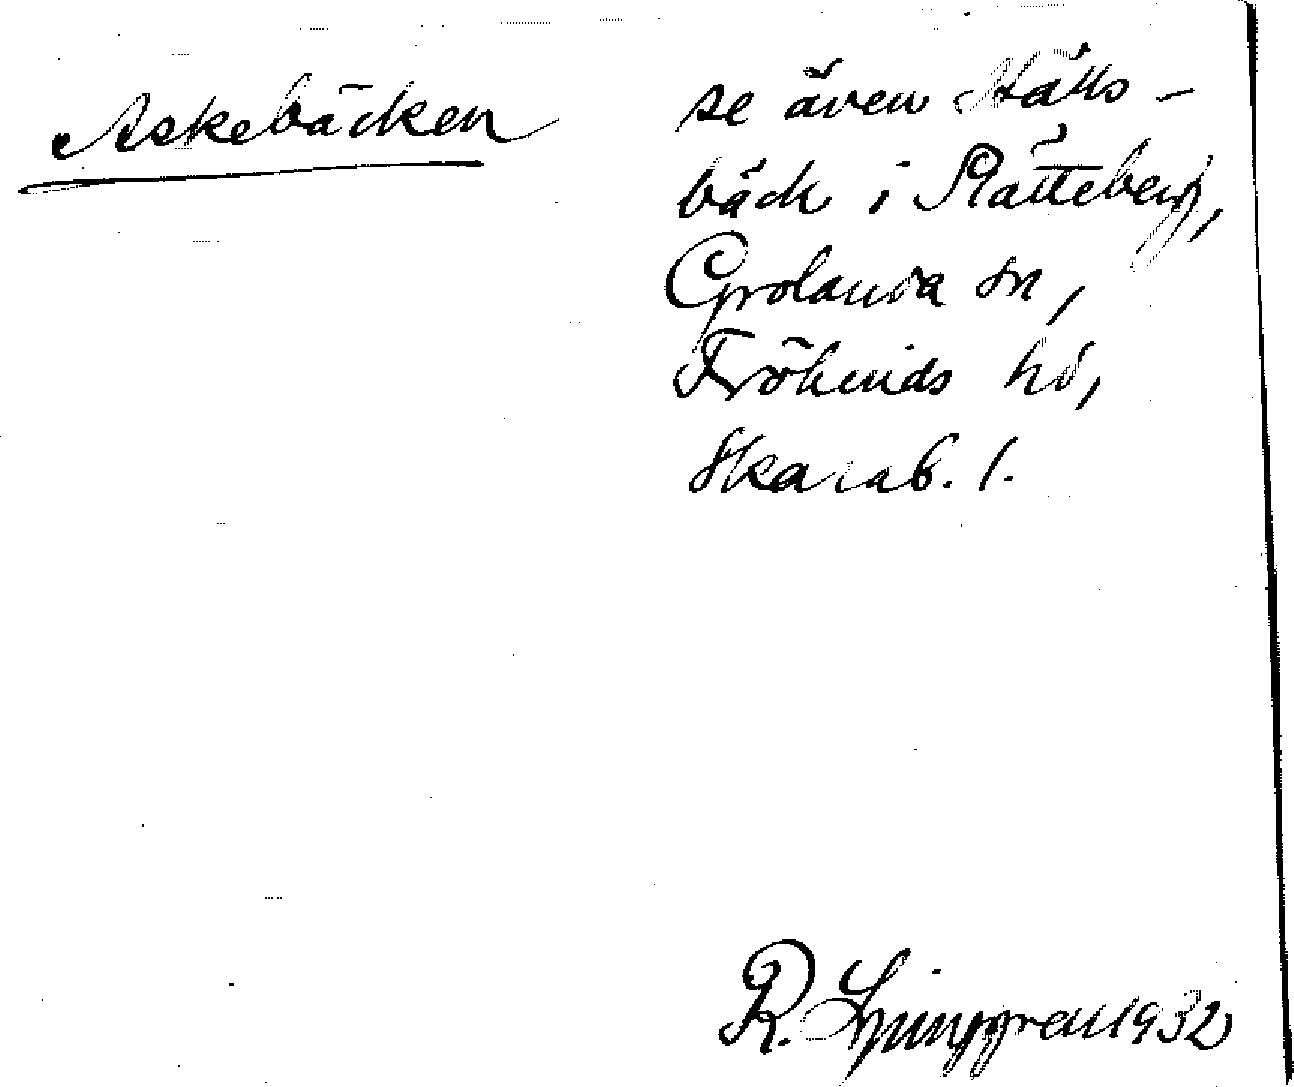 Askebäcken
se även Hälls-
bäck i Plätteberg,
Grolanda sn,
Frökinds hd,
Skarab. l.
R. Ljunggren 1932